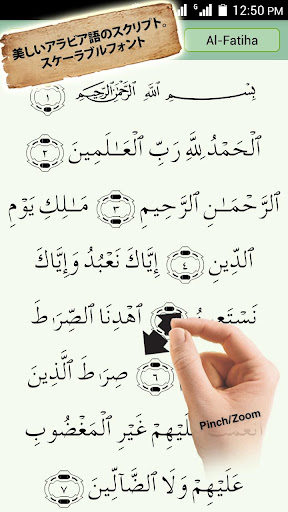 12:50 PM
美しいアラビア語のスクリプト。
スケーラブルフォント
Al-Fatiha
بِسْمِ ٱللَّهِ ٱلرَّحْمَـٰنِ ٱلرَّحِيمِ ۝١
ٱلْحَمْدُ لِلَّهِ رَبِّ ٱلْعَـٰلَمِينَ ۝٢
ٱلرَّحْمَـٰنِ ٱلرَّحِيمِ ۝٣ مَـٰلِكِ يَوْمِ
ٱلدِّينِ ۝٤ إِيَّاكَ نَعْبُدُ وَإِيَّاكَ
ٱهْدِنَا ٱلصِّرَٰطَ
۝٦ صِرَٰطَ ٱلَّذِينَ
عَلَيْهِمْ غَيْرِ ٱلْمَغْضُوبِ
Pinch/Zoom
عَلَيْهِمْ وَلَا ٱلضَّآلِّينَ ۝٧